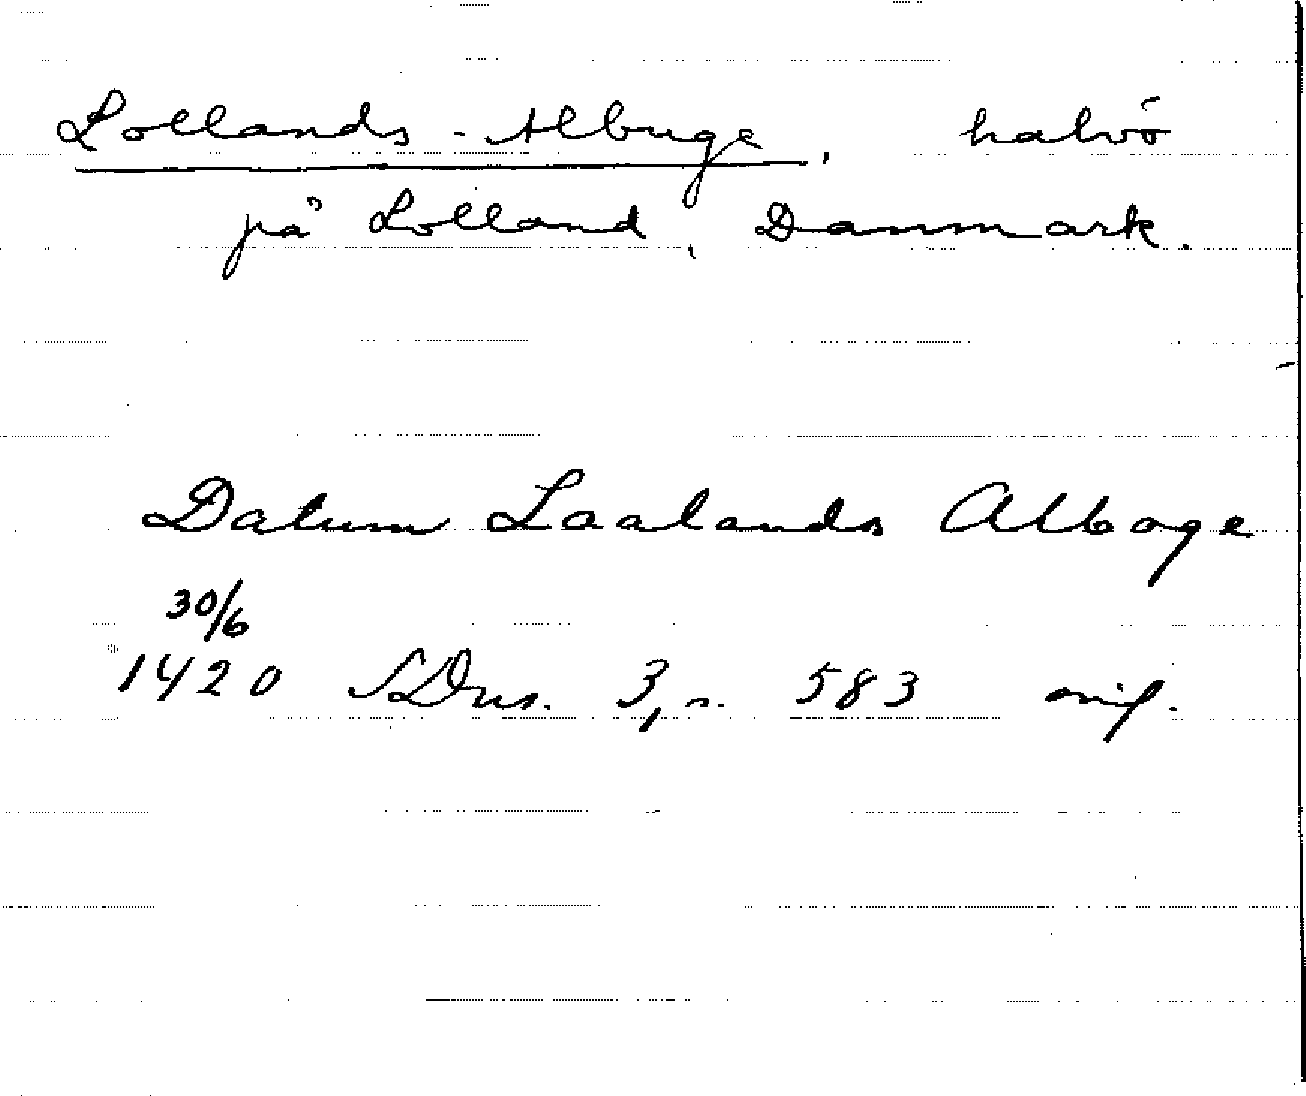 Lollands-Albuge, halvö
på Lolland, Danmark.
Datum Laalands Alboge
30/6
1420 SDns. 3, s. 583 orig.